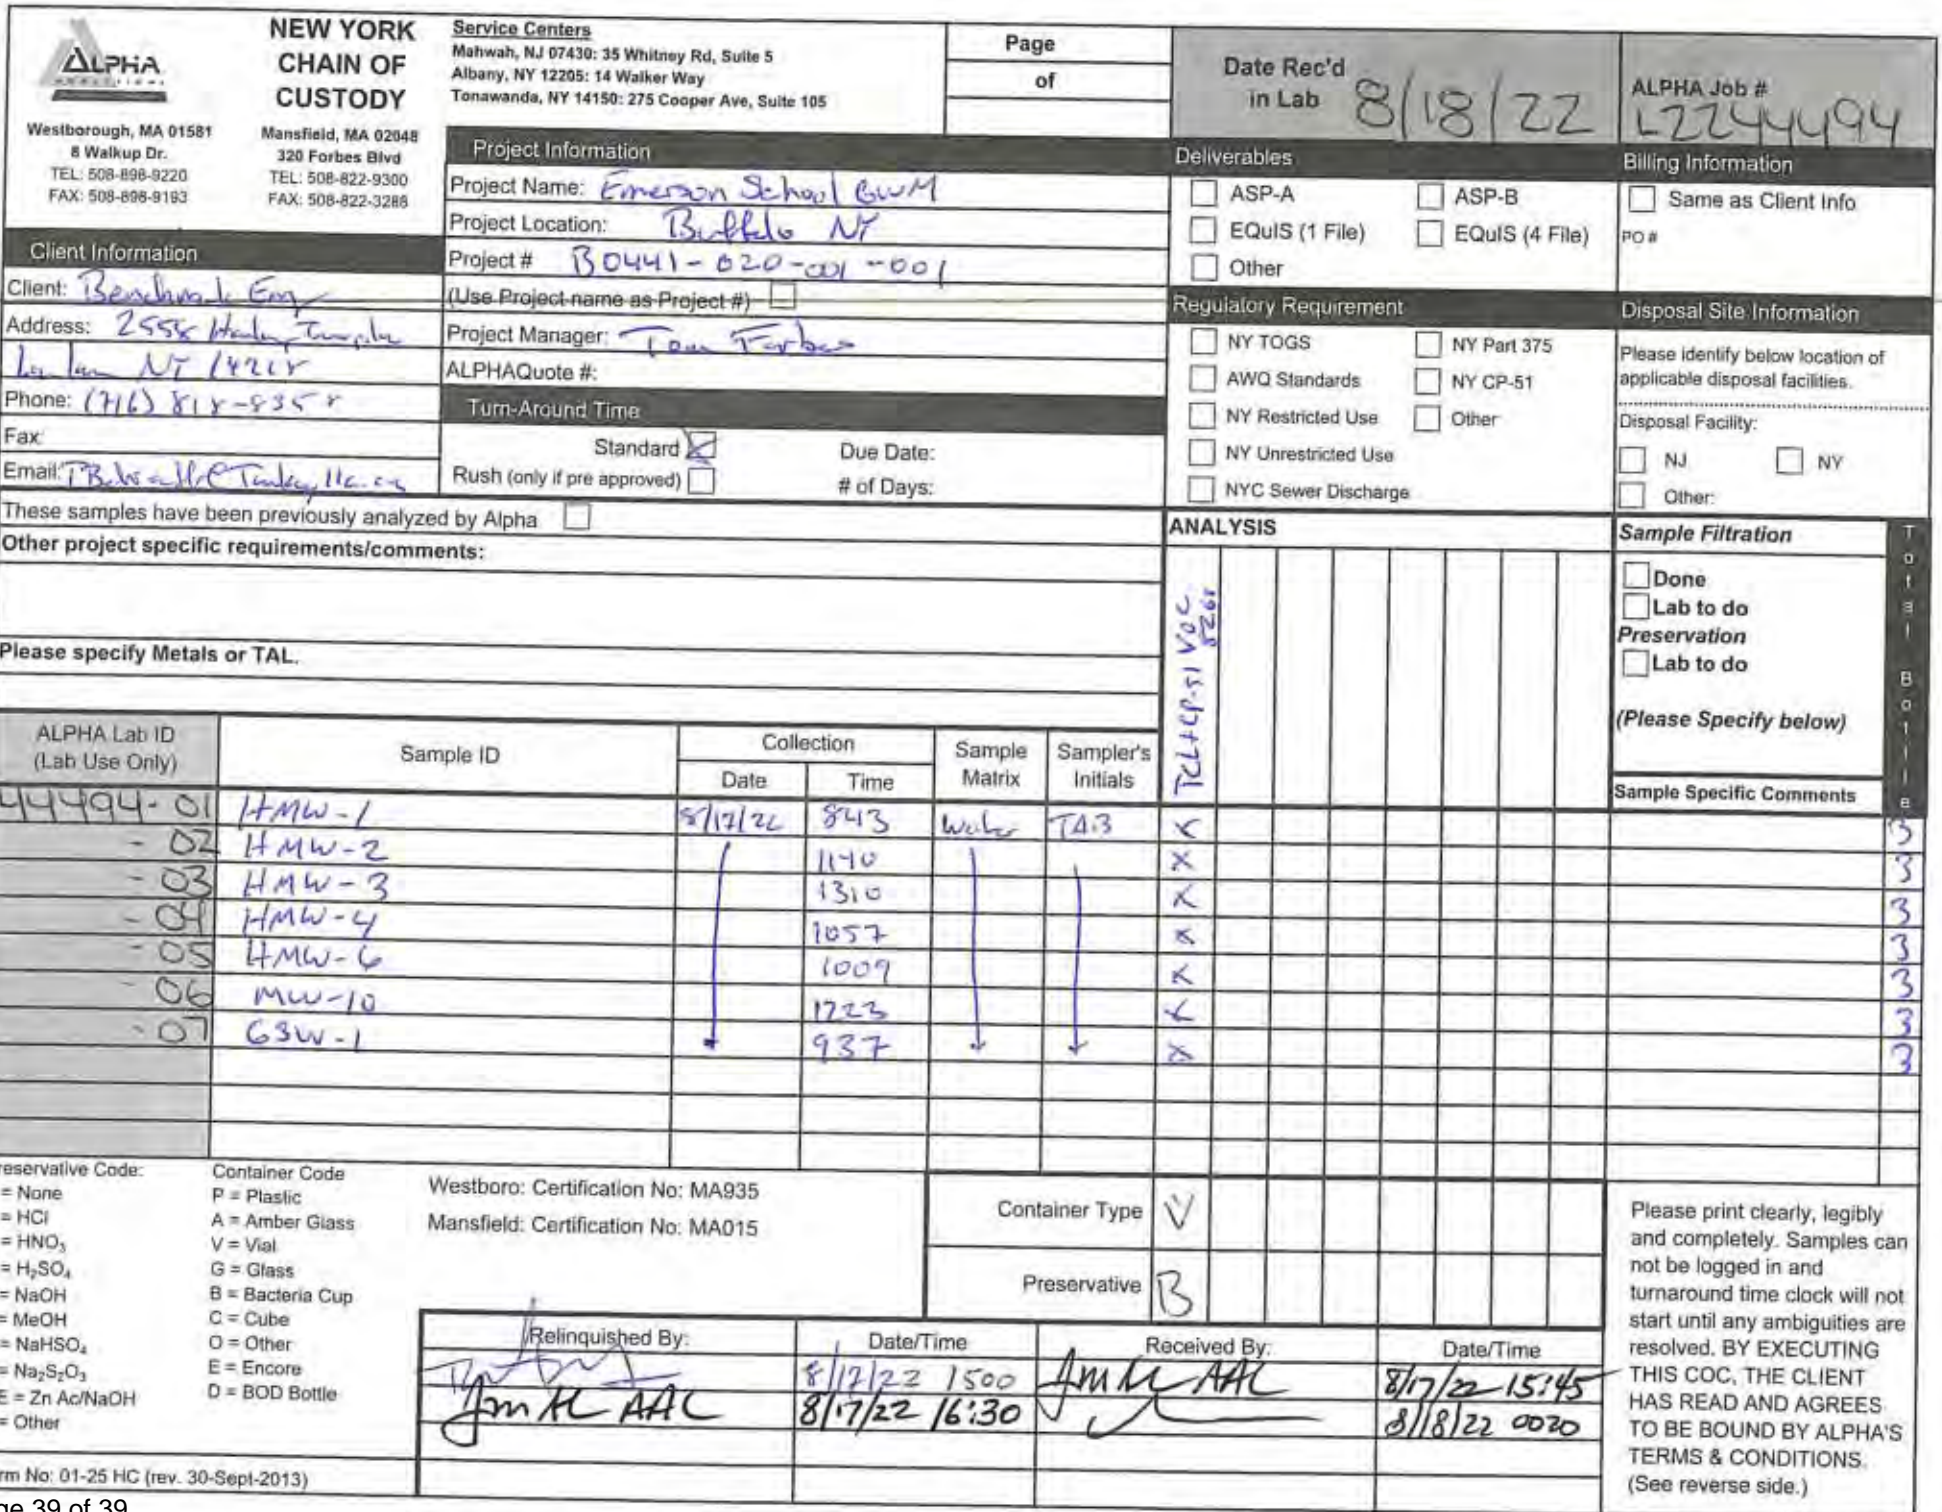 ALPHA
ANALYTICAL
Westborough, MA 01581
8 Walkup Dr.
TEL: 508-898-9220
FAX: 508-898-9193
NEW YORK
CHAIN OF
CUSTODY
Mansfield, MA 02048
320 Forbes Blvd
TEL: 508-822-9300
FAX: 508-822-3288
Service Centers
Mahwah, NJ 07430: 35 Whitney Rd, Suite 5
Albany, NY 12205: 14 Walker Way
Tonawanda, NY 14150: 275 Cooper Ave, Suite 105
Page
of
Date Rec'd
in Lab 8/18/22
ALPHA Job #
L2244494
Project Information
Project Name: Emerson School GWM
Project Location: Buffalo NY
Project # B0441-020-001-001
(Use Project name as Project #)
Project Manager: Tom Forbes
ALPHAQuote #:
Turn-Around Time
Standard
Due Date:
Rush (only if pre approved)
# of Days:
Deliverables
ASP-A
ASP-B
EQuIS (1 File)
EQuIS (4 File)
Other
Regulatory Requirement
NY TOGS
NY Part 375
AWQ Standards
NY CP-51
NY Restricted Use
Other
NY Unrestricted Use
NYC Sewer Discharge
Billing Information
Same as Client Info
PO #
Disposal Site Information
Please identify below location of
applicable disposal facilities.
Disposal Facility:
NJ
NY
Other:
Client Information
Client: Benchmark
Address: 2558
NY 14218
Phone: (716) 818-8358
Fax:
Email:
These samples have been previously analyzed by Alpha
Other project specific requirements/comments:
Please specify Metals or TAL.
ANALYSIS
TCL+CP-51 VOC
8260
Sample Filtration
Done
Lab to do
Preservation
Lab to do
(Please Specify below)
Sample Specific Comments
Total Bottle
ALPHA Lab ID
(Lab Use Only)
Sample ID
Collection
Date
Time
Sample
Matrix
Sampler's
Initials
44494-01 HMW-1 8/17/22 843 Water TAB X 3
-02 HMW-2 1140 X 3
-03 HMW-3 1310 X 3
-04 HMW-4 1057 X 3
-05 HMW-6 1009 X 3
-06 MW-10 1223 X 3
-07 GSW-1 937 X 3
reservative Code:
= None
= HCl
= HNO3
= H2SO4
= NaOH
= MeOH
= NaHSO4
= Na2S2O3
E = Zn Ac/NaOH
= Other
Container Code
P = Plastic
A = Amber Glass
V = Vial
G = Glass
B = Bacteria Cup
C = Cube
O = Other
E = Encore
D = BOD Bottle
Westboro: Certification No: MA935
Mansfield: Certification No: MA015
Container Type V
Preservative B
Relinquished By:
Date/Time
Received By:
Date/Time
8/17/22 1500
AAL
8/17/22 15:45
AAL
8/17/22 16:30
8/18/22 0020
Please print clearly, legibly
and completely. Samples can
not be logged in and
turnaround time clock will not
start until any ambiguities are
resolved. BY EXECUTING
THIS COC, THE CLIENT
HAS READ AND AGREES
TO BE BOUND BY ALPHA'S
TERMS & CONDITIONS.
(See reverse side.)
rm No: 01-25 HC (rev. 30-Sept-2013)
ge 39 of 39